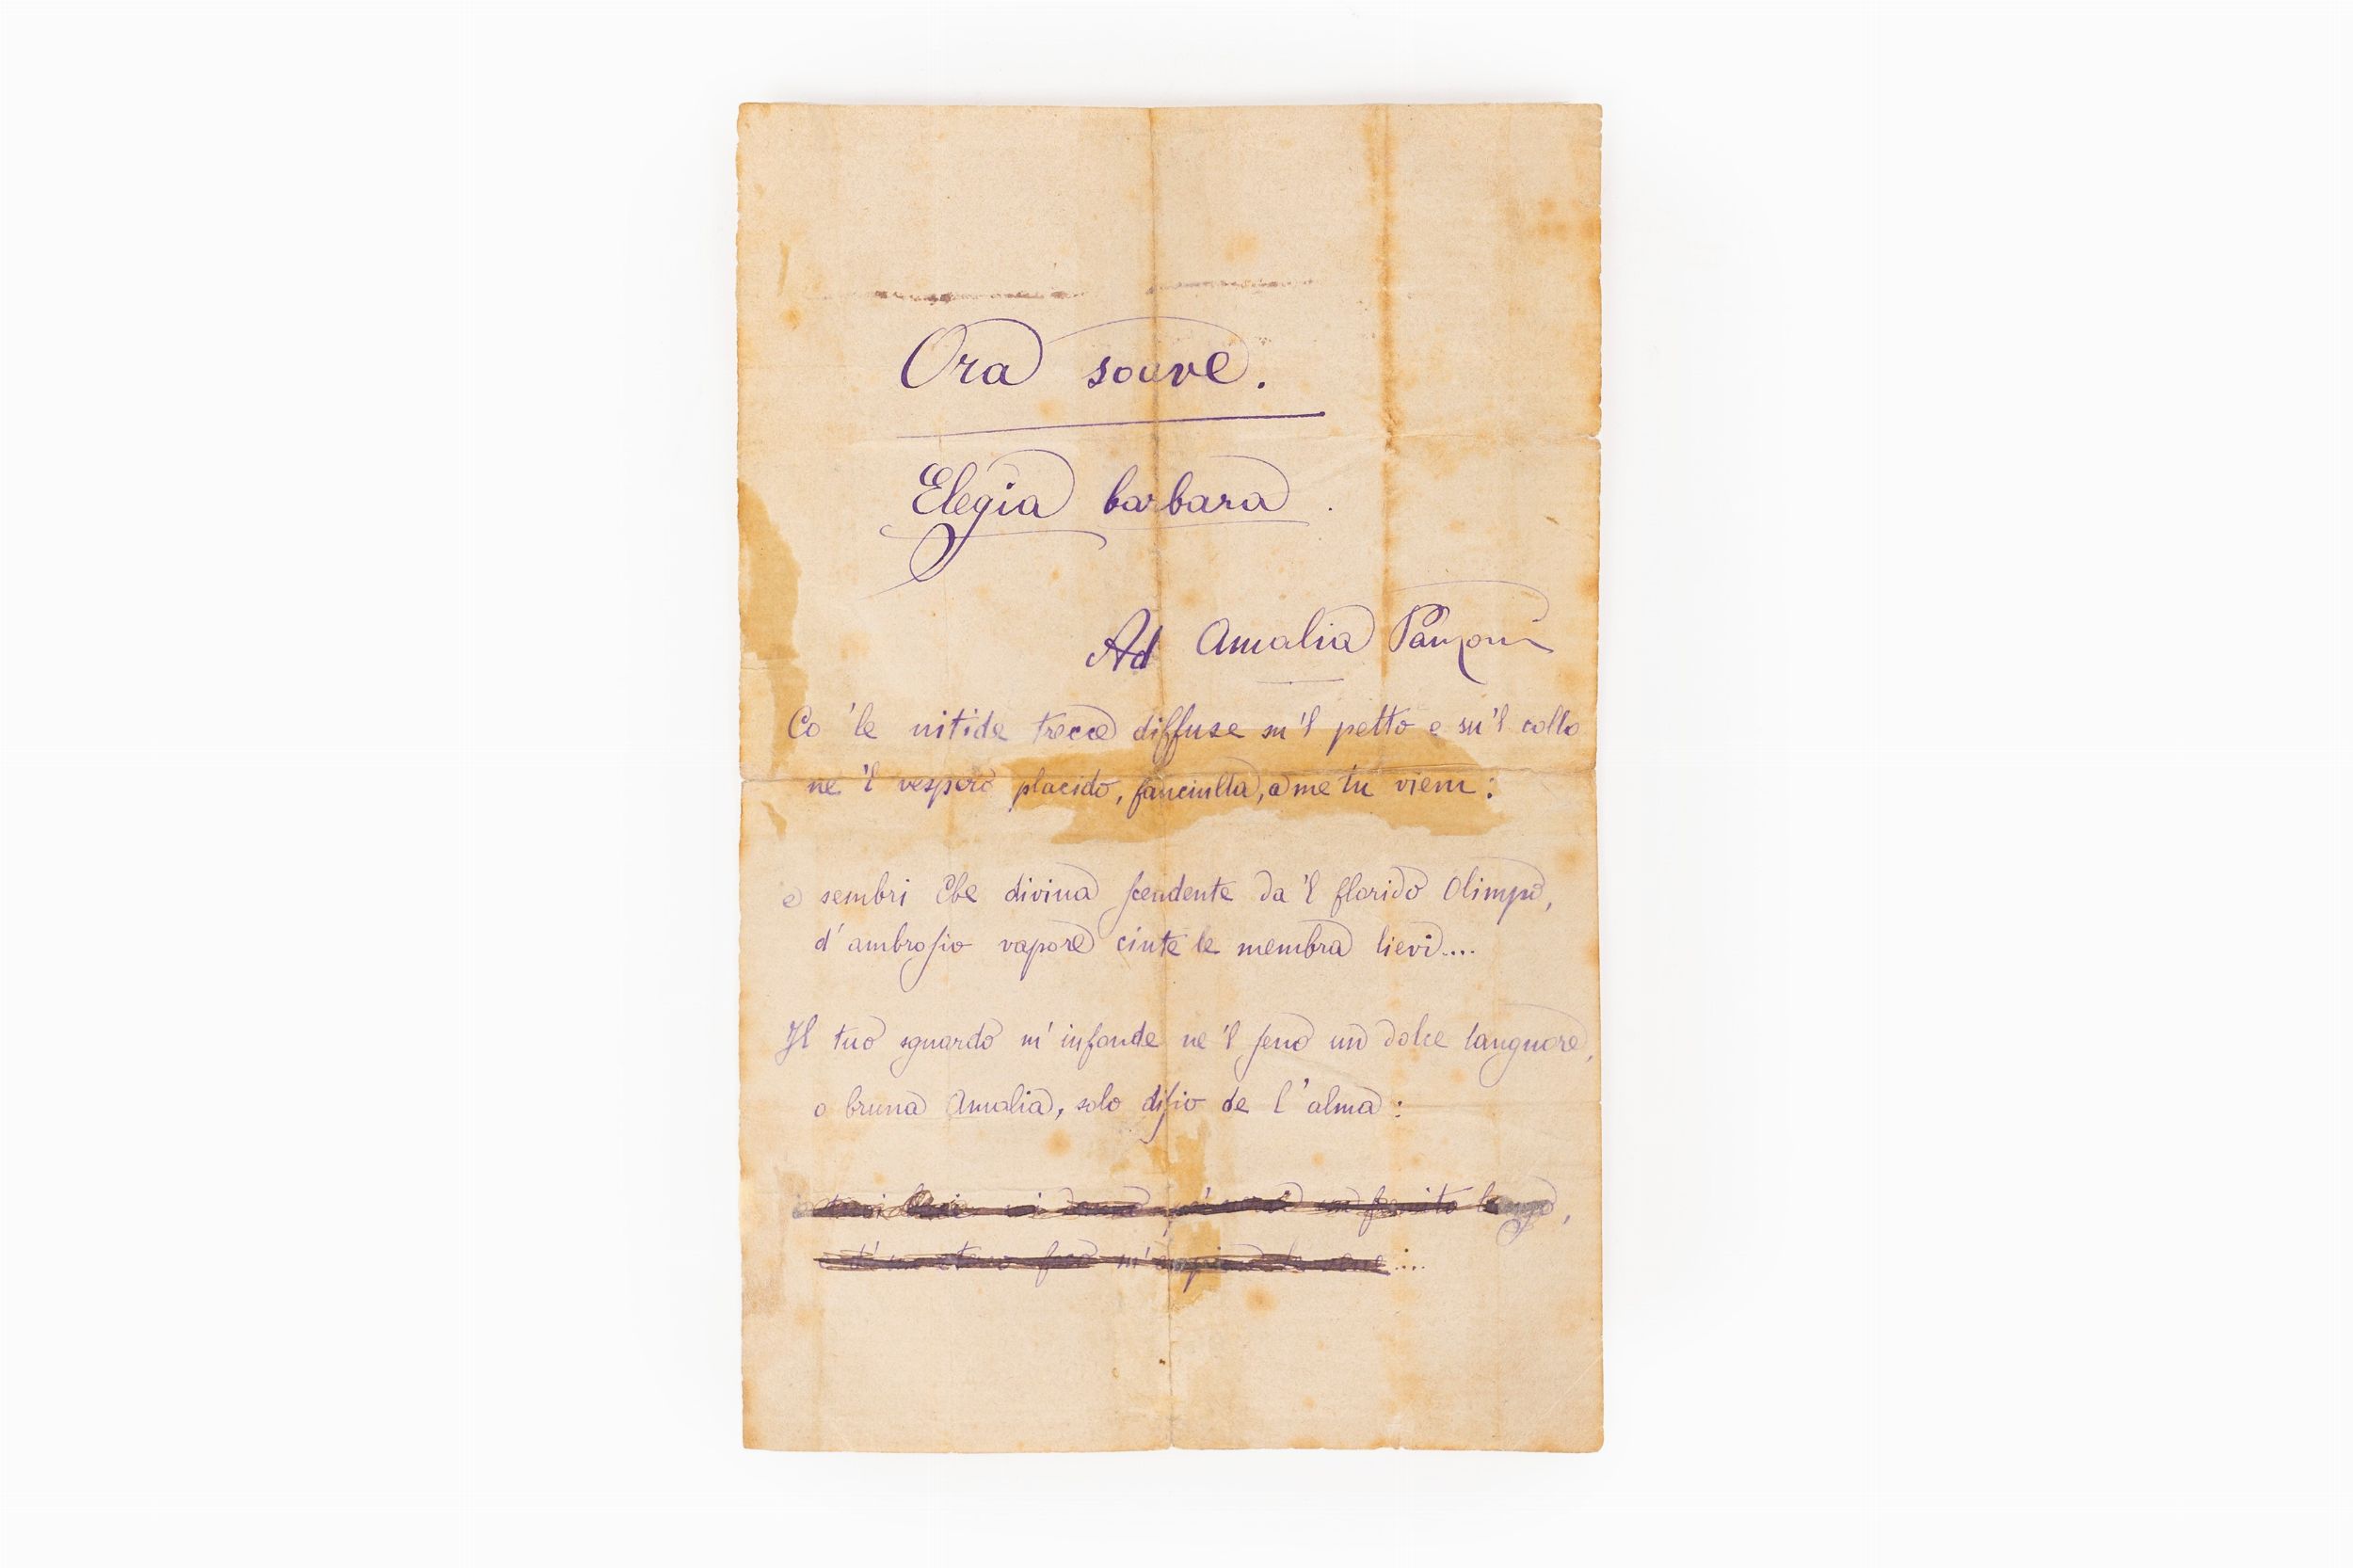 Ora soave.
Elegia barbara.
Ad Amalia Panzoni
Co 'le nitide trecce diffuse su 'l petto e su 'l collo
ne 'l vespero placido, fanciulla, a me tu vieni:
e sembri Ebe divina scendente da 'l florido Olimpo,
d'ambrosio vapore cinte le membra lievi....
Il tuo sguardo m'infonde ne 'l seno un dolce languore,
o bruna Amalia, solo disio de l'alma: